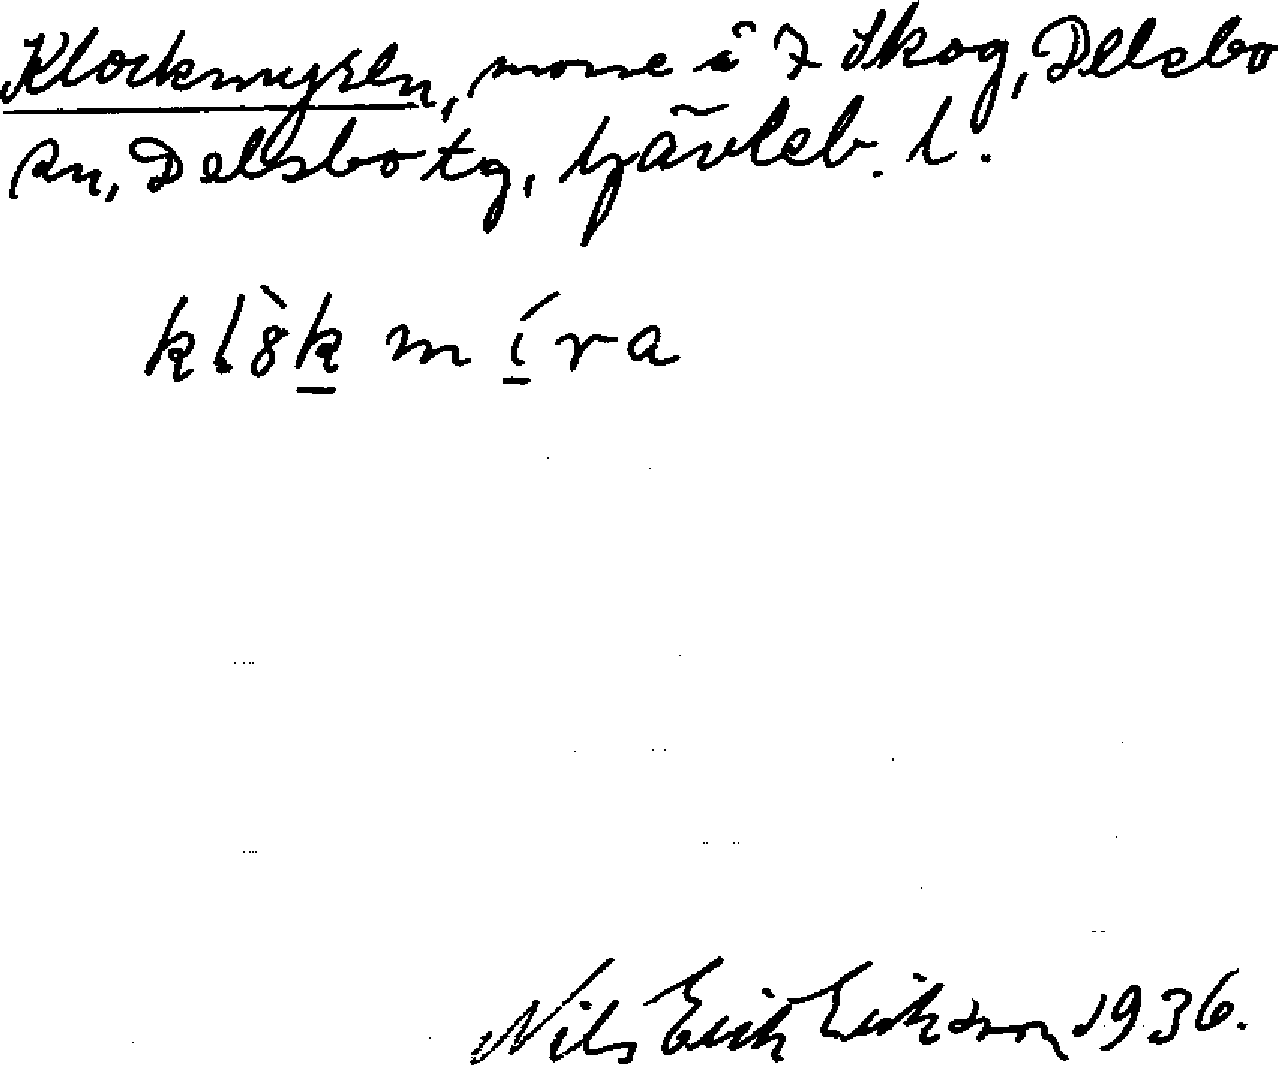 Klockmyren, mosse i 7 Skog, Delsbo
sn, Delsbo tg, Gävleb. l.
klòk míra
Nils Erik Erikson 1936.